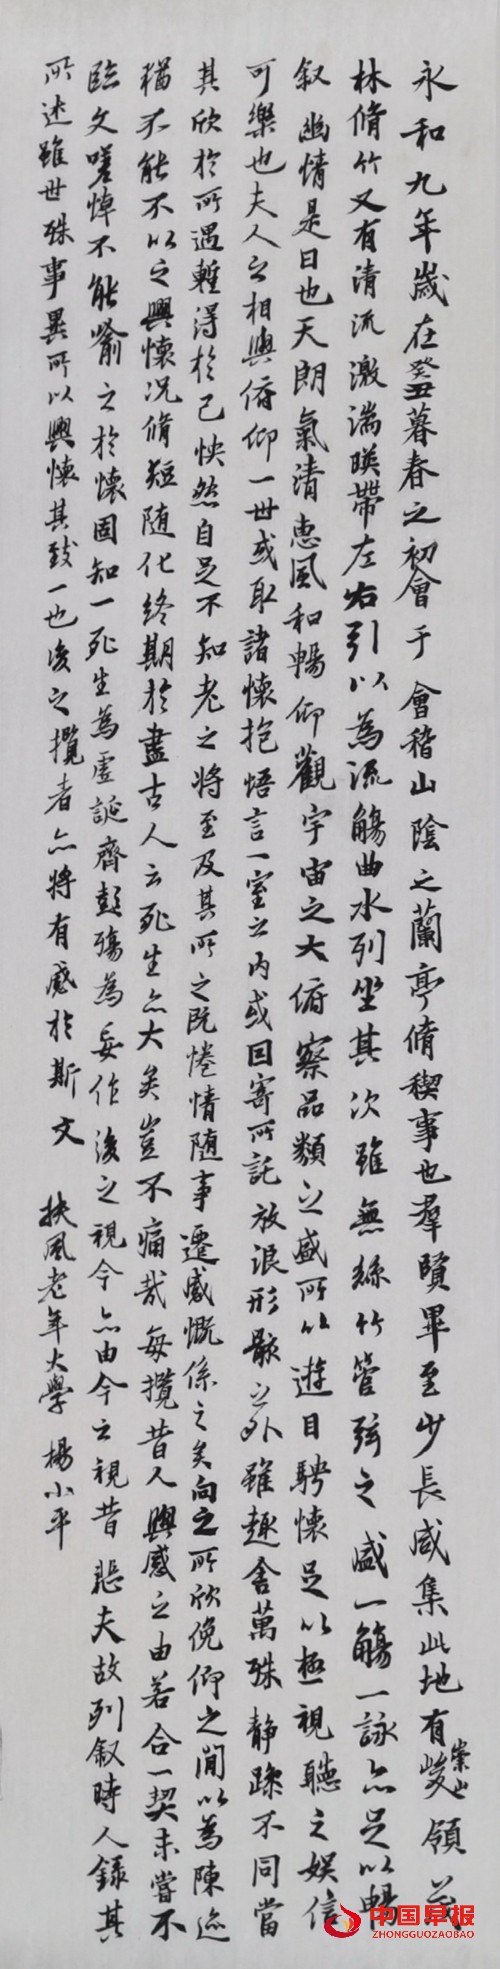 永和九年歲在癸丑暮春之初會于會稽山陰之蘭亭脩稧事也羣賢畢至少長咸集此地有崇山峻領茂
林脩竹又有清流激湍暎帶左右引以為流觴曲水列坐其次雖無絲竹管弦之盛一觴一詠亦足以暢
叙幽情是日也天朗氣清惠風和暢仰觀宇宙之大俯察品類之盛所以遊目騁懷足以極視聽之娛信
可樂也夫人之相與俯仰一世或取諸懷抱悟言一室之內或因寄所託放浪形骸之外雖趣舍萬殊静躁不同當
其欣於所遇暫得於己怏然自足不知老之將至及其所之既惓情随事遷感慨係之矣向之所欣俛仰之閒以為陳迹
猶不能不以之興懷况脩短随化終期於盡古人云死生亦大矣豈不痛哉每攬昔人興感之由若合一契未嘗不
臨文嗟悼不能喻之於懷固知一死生為虛誕齊彭殤為妄作後之視今亦由今之視昔悲夫故列叙時人錄其
所述雖世殊事異所以興懷其致一也後之攬者亦將有感於斯文 扶風老年大學 楊小平
中国早报
ZHONGGUOZAOBAO